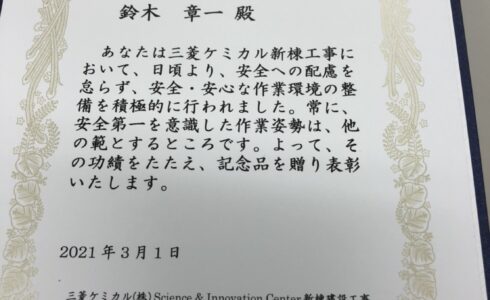 鈴木 章一 殿
あなたは三菱ケミカル新棟工事に
おいて、日頃より、安全への配慮を
怠らず、安全・安心な作業環境の整
備を積極的に行われました。常に、
安全第一を意識した作業姿勢は、他
の範とするところです。よって、そ
の功績をたたえ、記念品を贈り表彰
いたします。
2021年3月1日
三菱ケミカル(株)Science & Innovation Center新棟建設工事